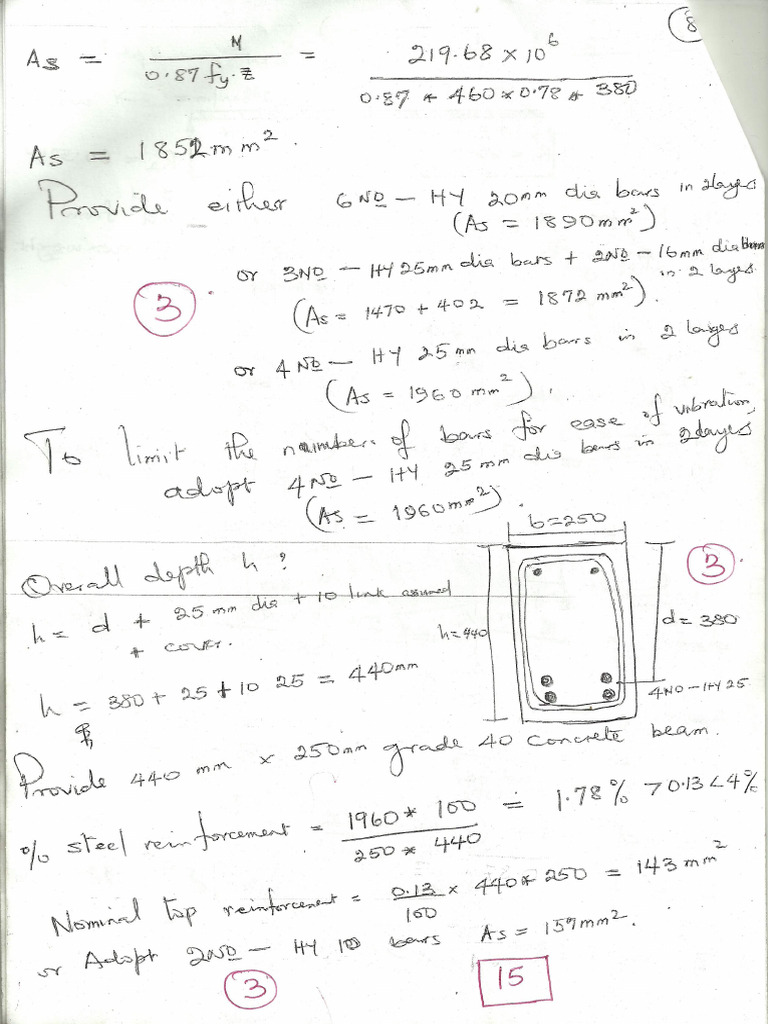 8
As = M / 0.87 fy.z = 219.68 × 10^6 / 0.87 * 460 × 0.78 * 380
As = 1852 mm².
Provide either 6NO – HY 20mm dia bars in 2layers
(As = 1890mm²)
or 3NO – HY 25mm dia bars + 2NO – 16mm dia
in 2 layers
3.
(As = 1470 + 402 = 1872 mm²).
or 4NO – HY 25mm dia bars in 2 layers
(As = 1960mm²).
To limit the number of bars for ease of vibration,
adopt 4NO – HY 25mm dia bars in 2layers
(As = 1960mm²).
b=250
3.
Overall depth h?
h = d + 25mm dia + 10 link assumed
+ cover.
h=440
d = 380
h = 380 + 25 + 10 25 = 440mm
4NO – HY 25
Provide 440 mm × 250mm grade 40 concrete beam.
% steel reinforcement = 1960 * 100 / 250 * 440 = 1.78% > 0.13 < 4%
Nominal top reinforcement = 0.13/100 × 440 * 250 = 143mm²
or Adopt 2NO – HY 10 bars As = 157mm².
3
15